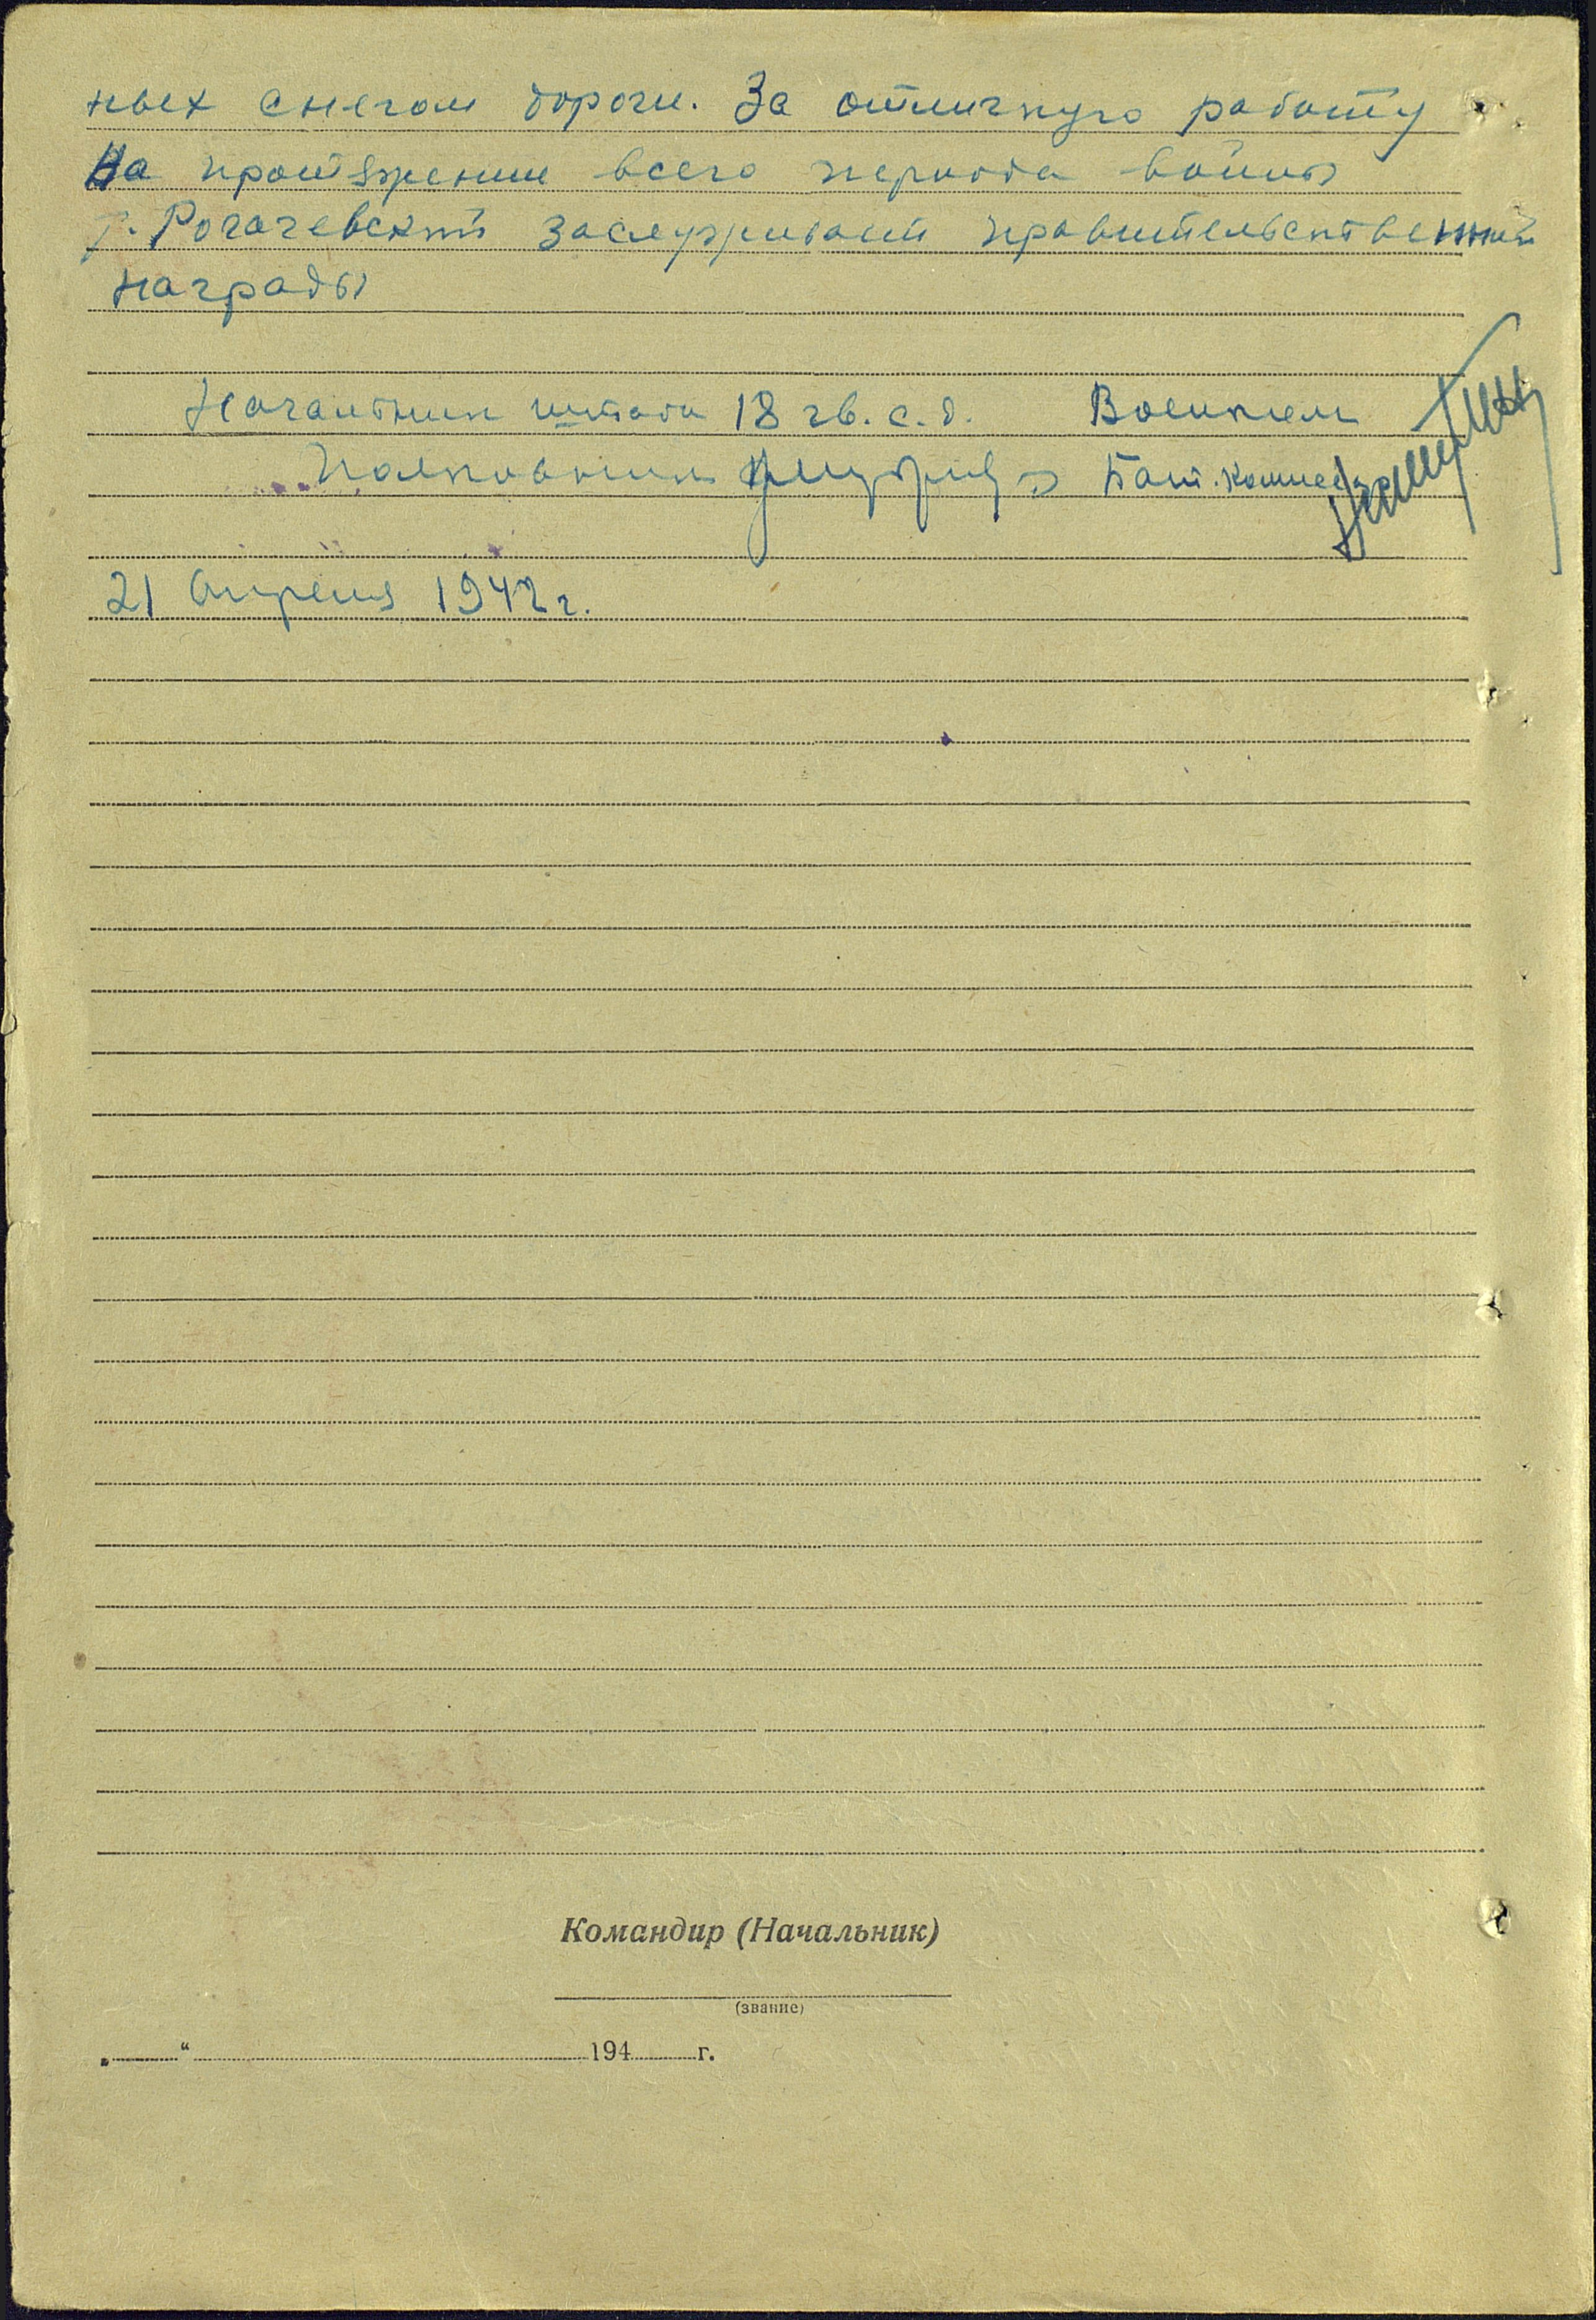 ных снегом дороги. За отличную работу
На протяжении всего периода войны
т. Рогачевский заслуживает правительственной
награды
Начальник штаба 18 гв. с. д. Военком
Полковник Бат. комиссар
21 апреля 1942 г.
Командир (Начальник)
(звание)
„ “ 194 г.